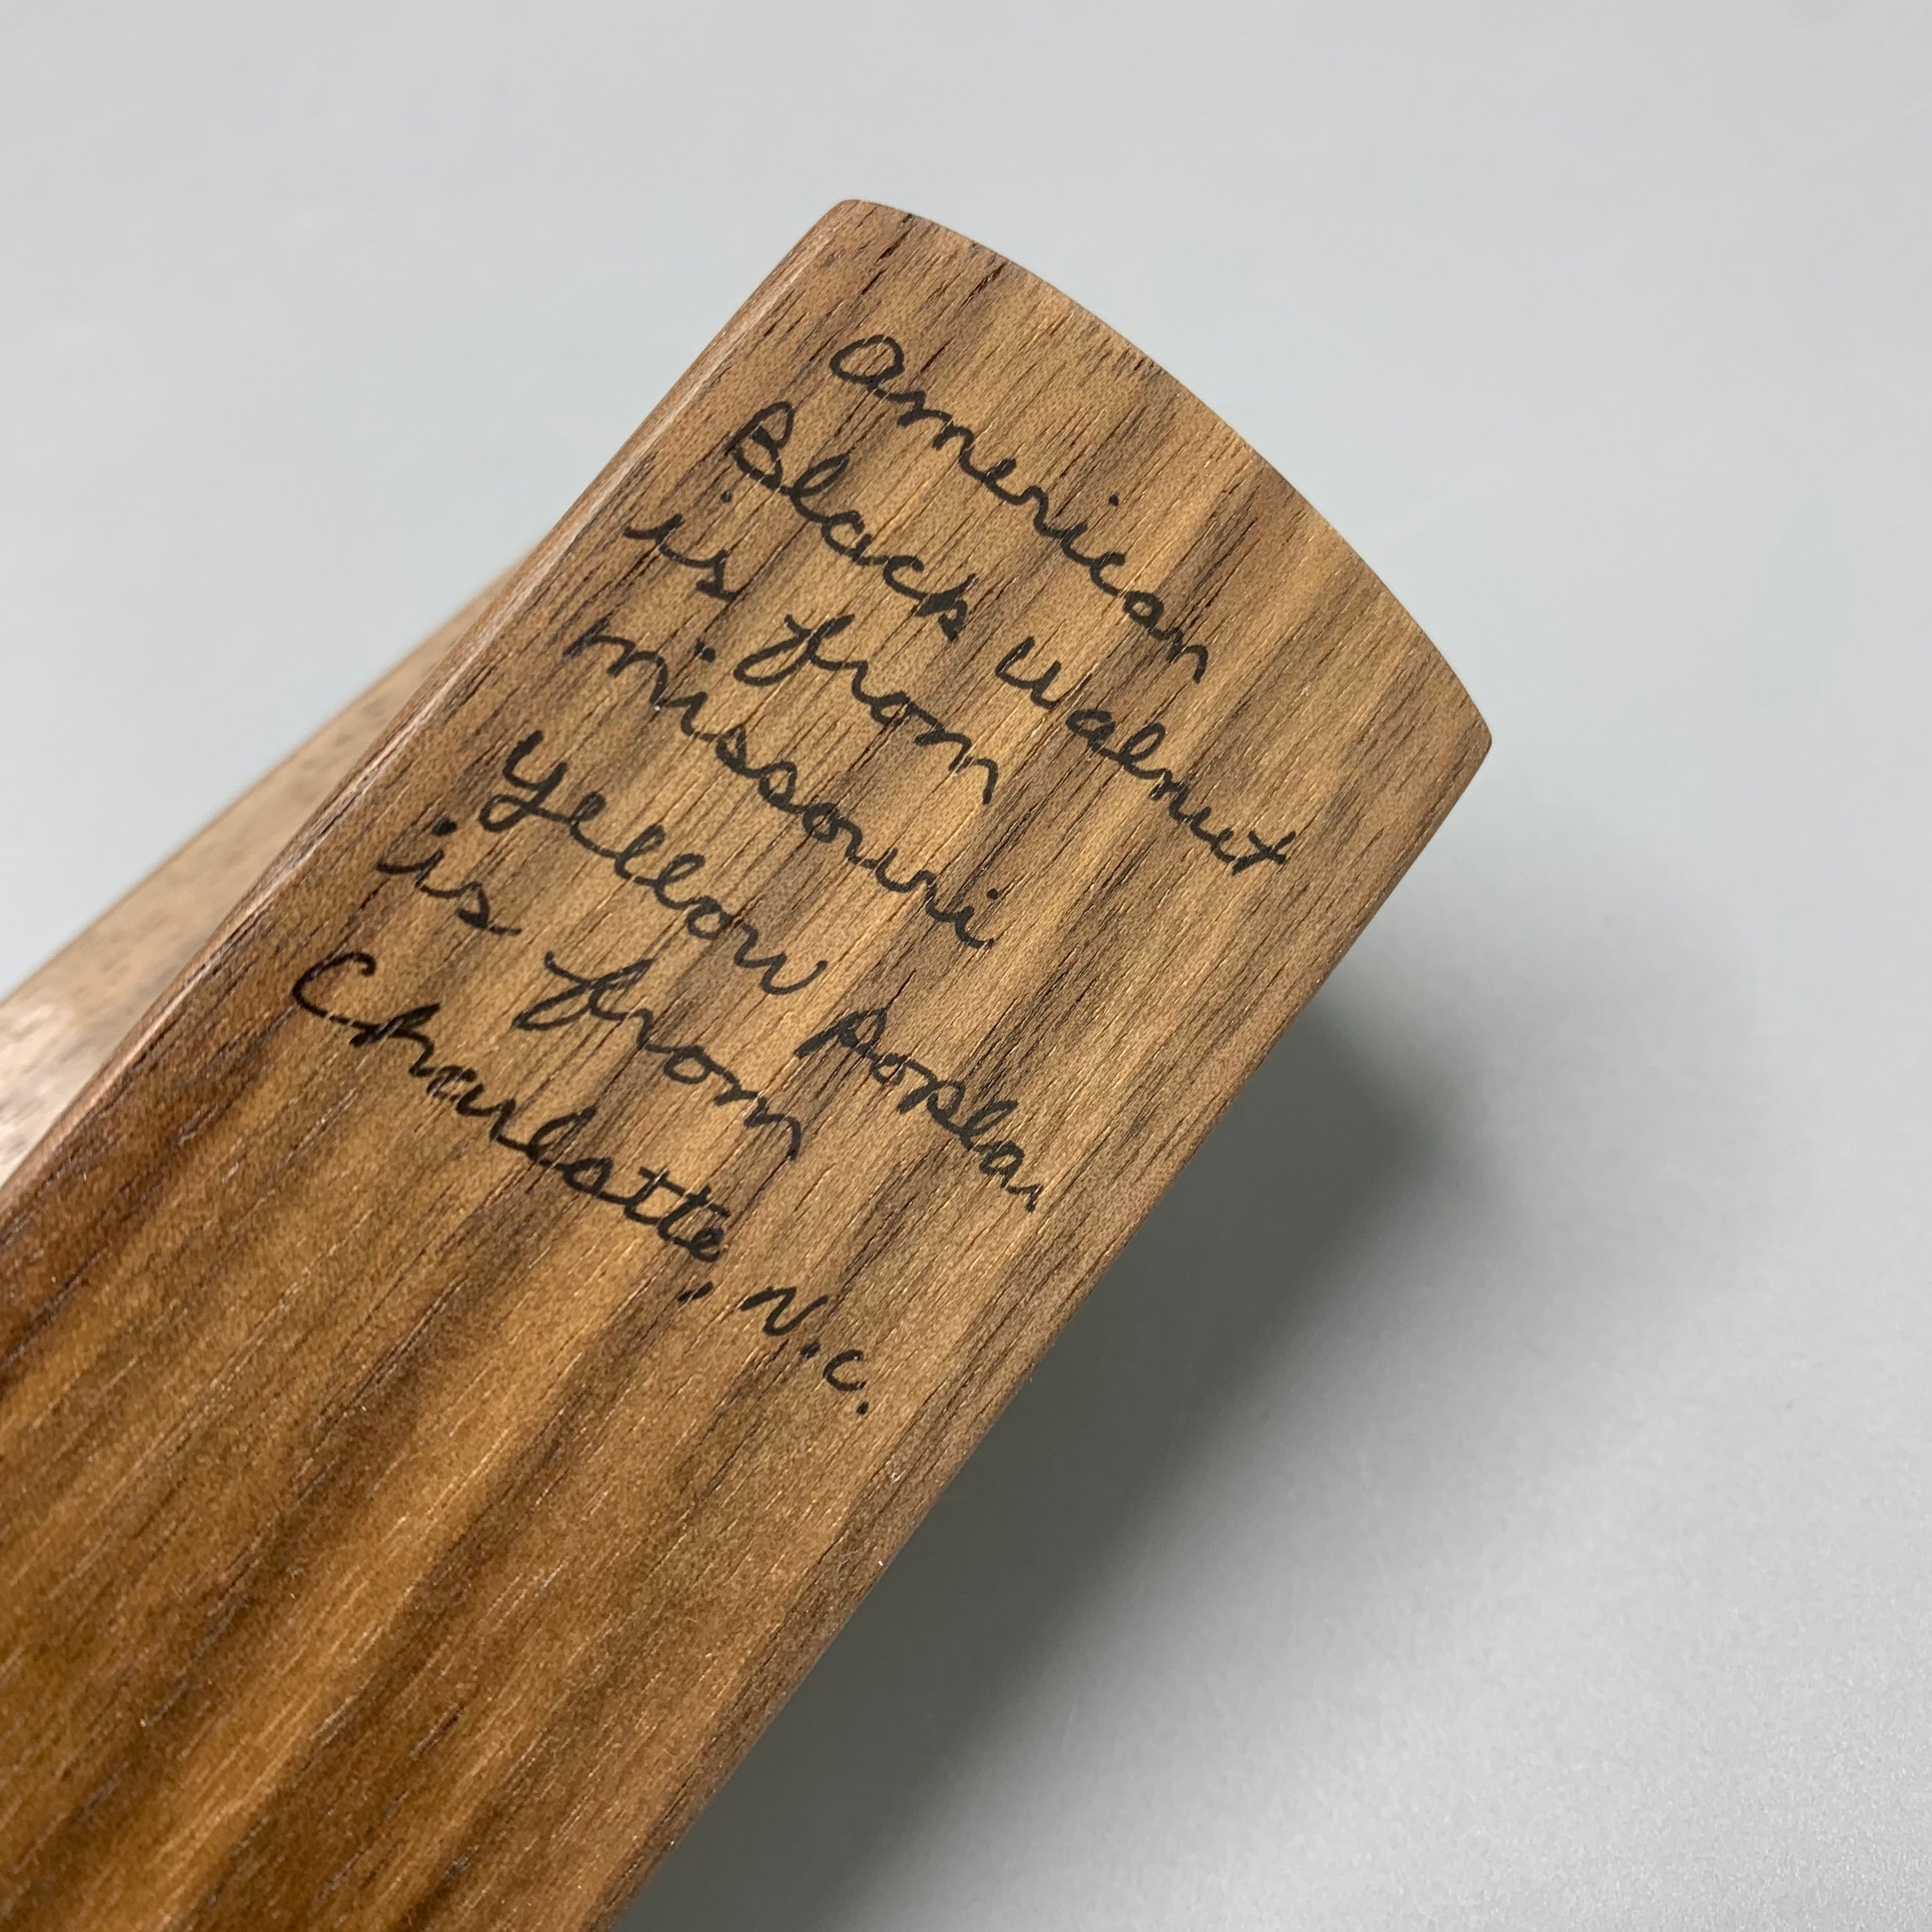 American
Black Walnut
is from
missouri
yellow poplar
is from
Charlotte, N.C.